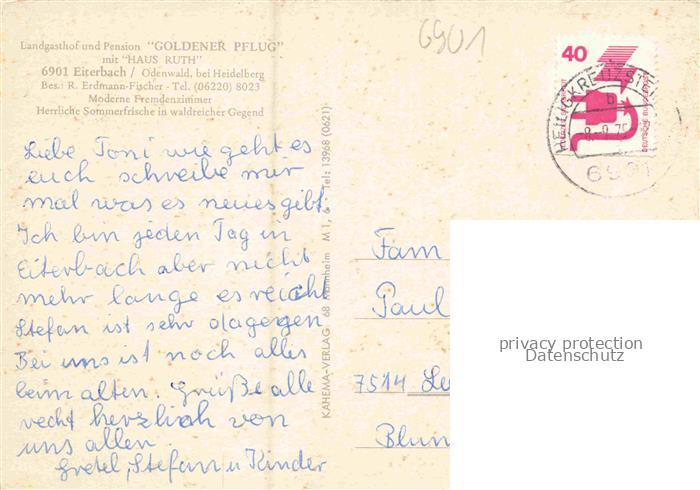 6901
Landgasthof und Pension "GOLDENER PFLUG"
mit "HAUS RUTH"
6901 Eiterbach / Odenwald, bei Heidelberg
Bes.: R. Erdmann-Fischer - Tel. (06220) 8023
Moderne Fremdenzimmer
Herrliche Sommerfrische in waldreicher Gegend
Liebe Toni wie geht es
euch schreibe mir
mal was es neues gibt.
Ich bin jeden Tag in
Eiterbach aber nicht
mehr lange es reicht
Stefan ist sehr dagegen
Bei uns ist noch alles
beim alten. Grüße alle
recht herzlich von
uns allen
Gretel, Stefan u Kinder
KAHEMA-VERLAG 68 Mannheim M 1, 6 Tel: 13968 (0621)
40
DEUTSCHE BUNDESPOST
b
6901
Fam
Paul
7514
Blum
privacy protection
Datenschutz